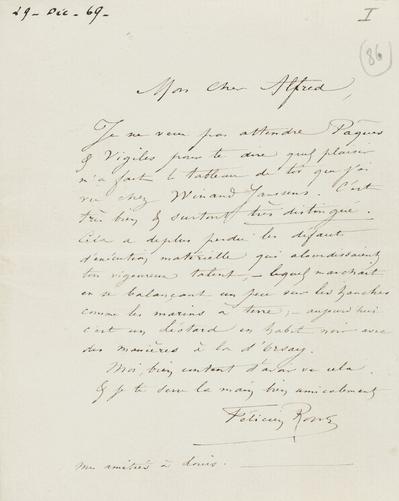 29 - Dec - 69 -
I
86
Mon cher Alfred,
Je ne veux pas attendre Pâques
& Vigiles pour te dire quel plaisir
m'a fait le tableau de toi que j'ai
vu chez Winand Janssens. C'est
très bien & surtout très distingué.
Cela a de plus perdu les défauts
d'exécution matérielle qui alourdissaient
ton vigoureux talent, - lequel marchait
en se balançant un peu sur les hanches
comme les marins à terre; - aujourd'hui
c'est un
en habit noir avec
des manières à la d'Orsay.
Moi, bien content d'avoir vu cela
& je te serre la main bien amicalement
Félicien Rops
mes amitiés à Louis.